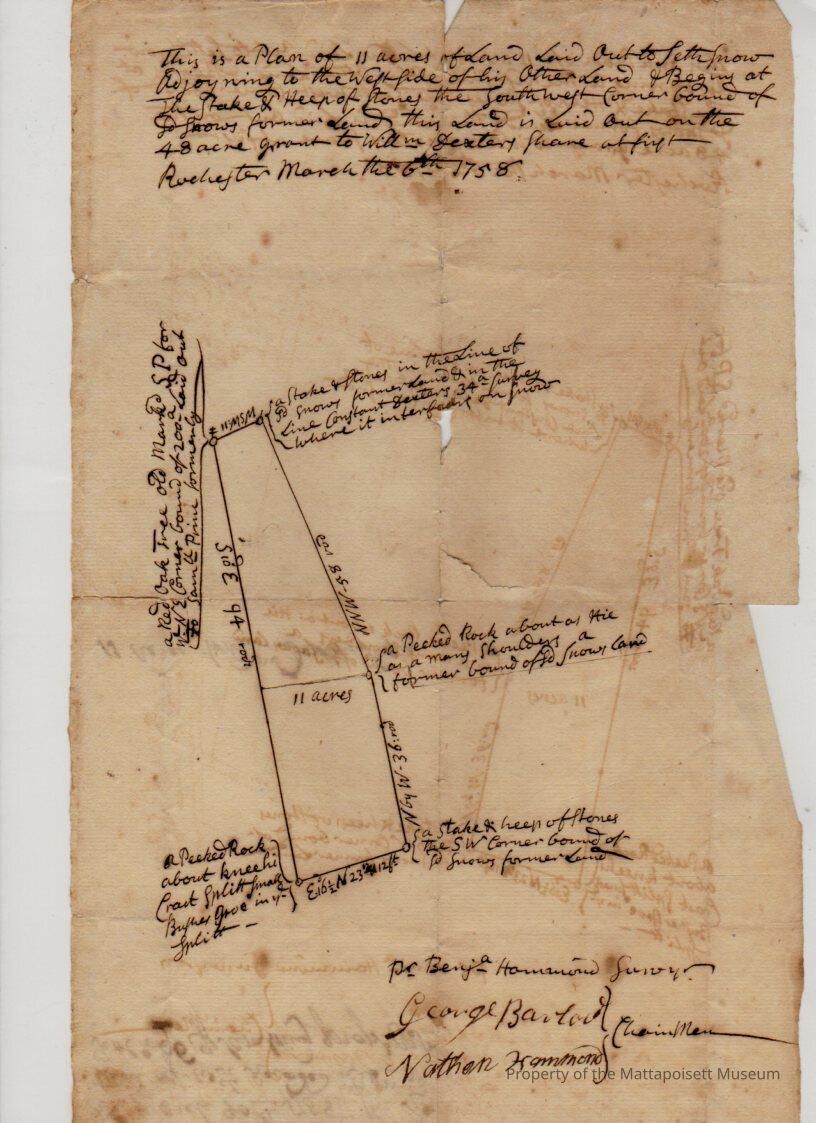 This is a Plan of 11 acres of Land Laid Out to Seth Snow
Adjoyning to the West side of his Other Land & Begins at
The Stake & Heep of Stones the Southwest Corner bound of
sd Snows former Land this Land is Laid Out on the
48 acre grant to Willm Dexters Share at first
Rochester March the 6th 1758
a Stake & Stones in the Line of
sd Snows former Land & in the
Line Constant Dexters 34a Survey
where it interferes on Snow
a Red Oak Tree old Markd SP for
NE Corner bound of 200a Laid out
to Samll Prince formerly
11 WSW
S10E 94 rods
NNW-58 rod
a Pecked Rock about as Hie
as a mans Shoulders a
former bound of sd Snows Land
11 acres
NbyW-36 rod
a Stake & heep of Stones
the SW Corner bound of
sd Snows former Land
a Pecked Rock
about knee hi
Cract Splitt small
Bushes Groe in ye
Splitt
E16½N 23 12ft
pr Benja Hammond Survr
George Barlow
Chain Men
Nathan Hammond
Property of the Mattapoisett Museum